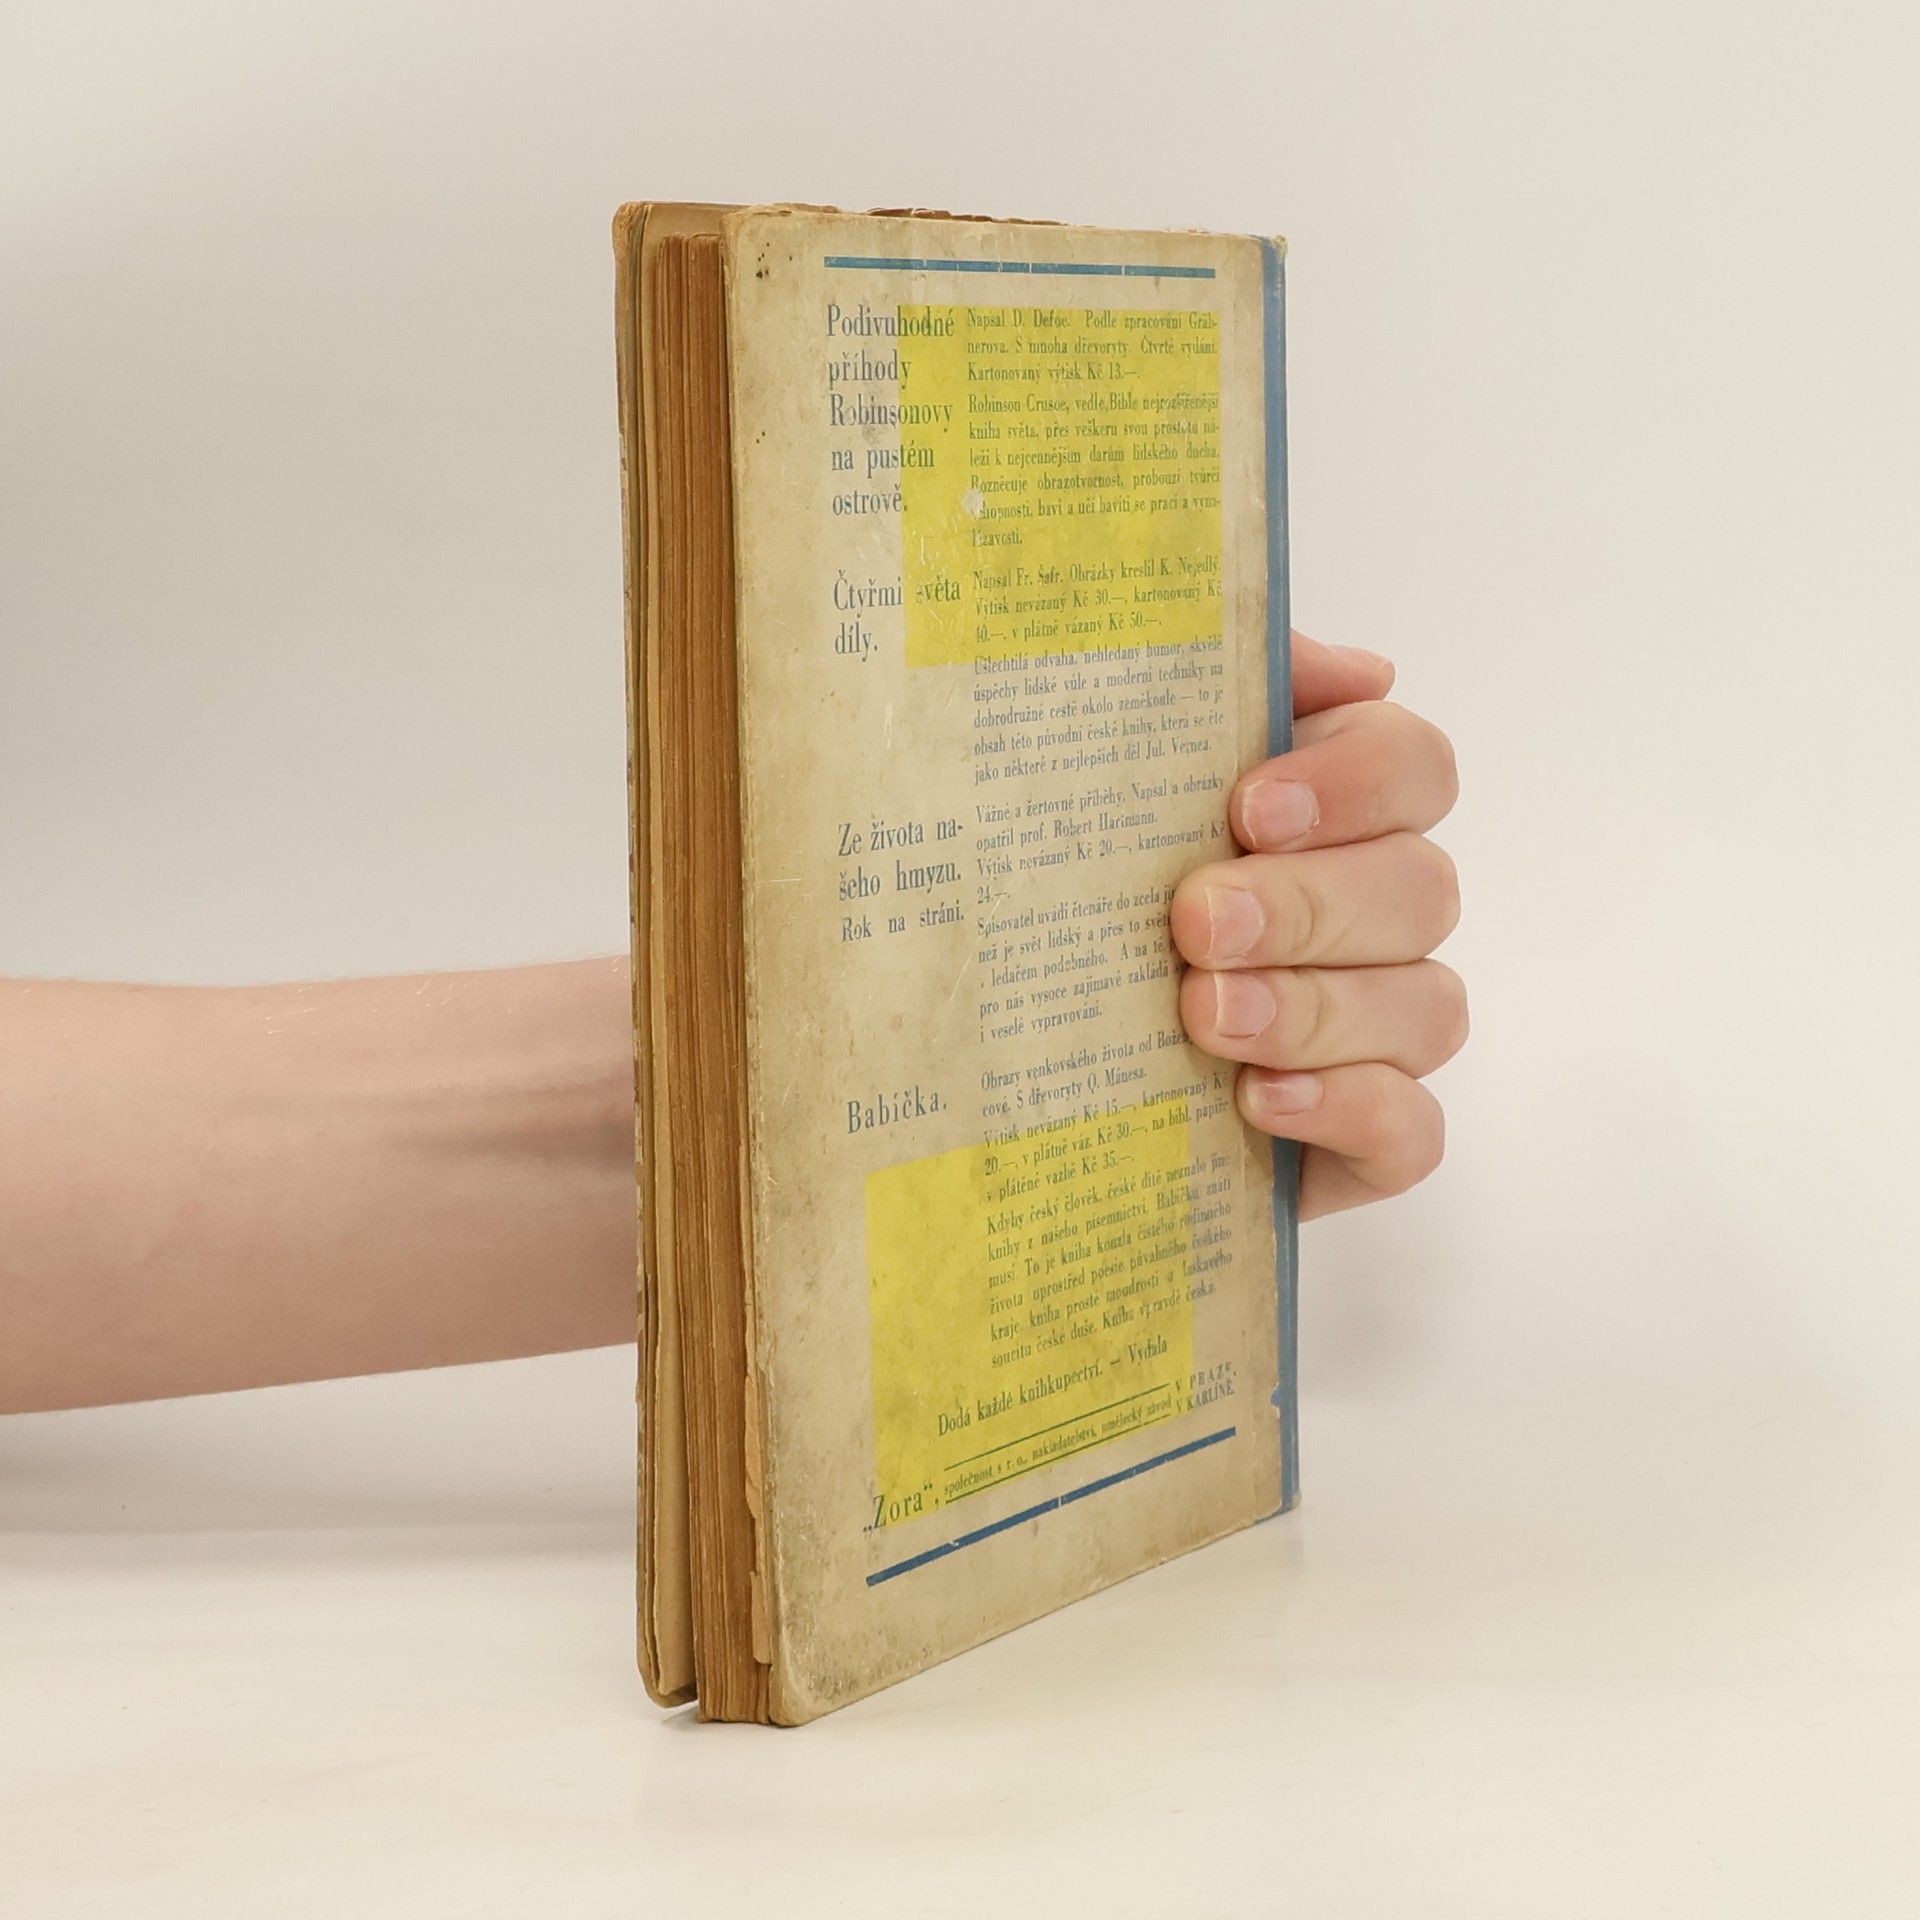 Podivuhodné
příhody
Robinsonovy
na pustém
ostrově.
Napsal D. Defoe. Podle zpracování Gräb-
nerova. S mnoha dřevoryty. Čtvrté vydání.
Kartonovaný výtisk Kč 13.—.
Robinson Crusoe, vedle Bible nejrozšířenější
kniha světa, přes veškeru svou prostotu ná-
leží k nejcennějším darům lidského ducha.
Rozněcuje obrazotvornost, probouzí tvůrčí
schopnosti, baví a učí baviti se prací a vyna-
lézavostí.
Čtyřmi světa
díly.
Napsal Fr. Šafr. Obrázky kreslil K. Nejedlý.
Výtisk nevázaný Kč 30.—, kartonovaný Kč
40.—, v plátně vázaný Kč 50.—.
Ušlechtilá odvaha, nehledaný humor, skvělé
úspěchy lidské vůle a moderní techniky na
dobrodružné cestě okolo zeměkoule — to je
obsah této původní české knihy, která se čte
jako některé z nejlepších děl Jul. Vernea.
Ze života na-
šeho hmyzu.
Rok na stráni.
Vážné a žertovné příběhy. Napsal a obrázky
opatřil prof. Robert Hartmann.
Výtisk nevázaný Kč 20.—, kartonovaný Kč
24.—.
Spisovatel uvádí čtenáře do zcela
než je svět lidský a přes to
ledačem podobného. A na té
pro nás vysoce zajímavé zakládá
i veselé vypravování.
Babička.
Obrazy venkovského života od
cové. S dřevoryty Q. Mánesa.
Výtisk nevázaný Kč 15.—, kartonovaný Kč
20.—, v plátně váz. Kč 30.—, na bibl. papíře
v plátěné vazbě Kč 35.—.
Kdyby český člověk, české dítě neznalo jiné
knihy z našeho písemnictví, Babičku znáti
musí. To je kniha kouzla čistého rodinného
života uprostřed poesie půvabného českého
kraje, kniha prosté moudrosti a laskavého
soucitu české duše. Kniha vpravdě česká.
Dodá každé knihkupectví. — Vydala
„Zora“, společnost s r. o., nakladatelství, umělecký závod V PRAZE,
V KARLÍNĚ.